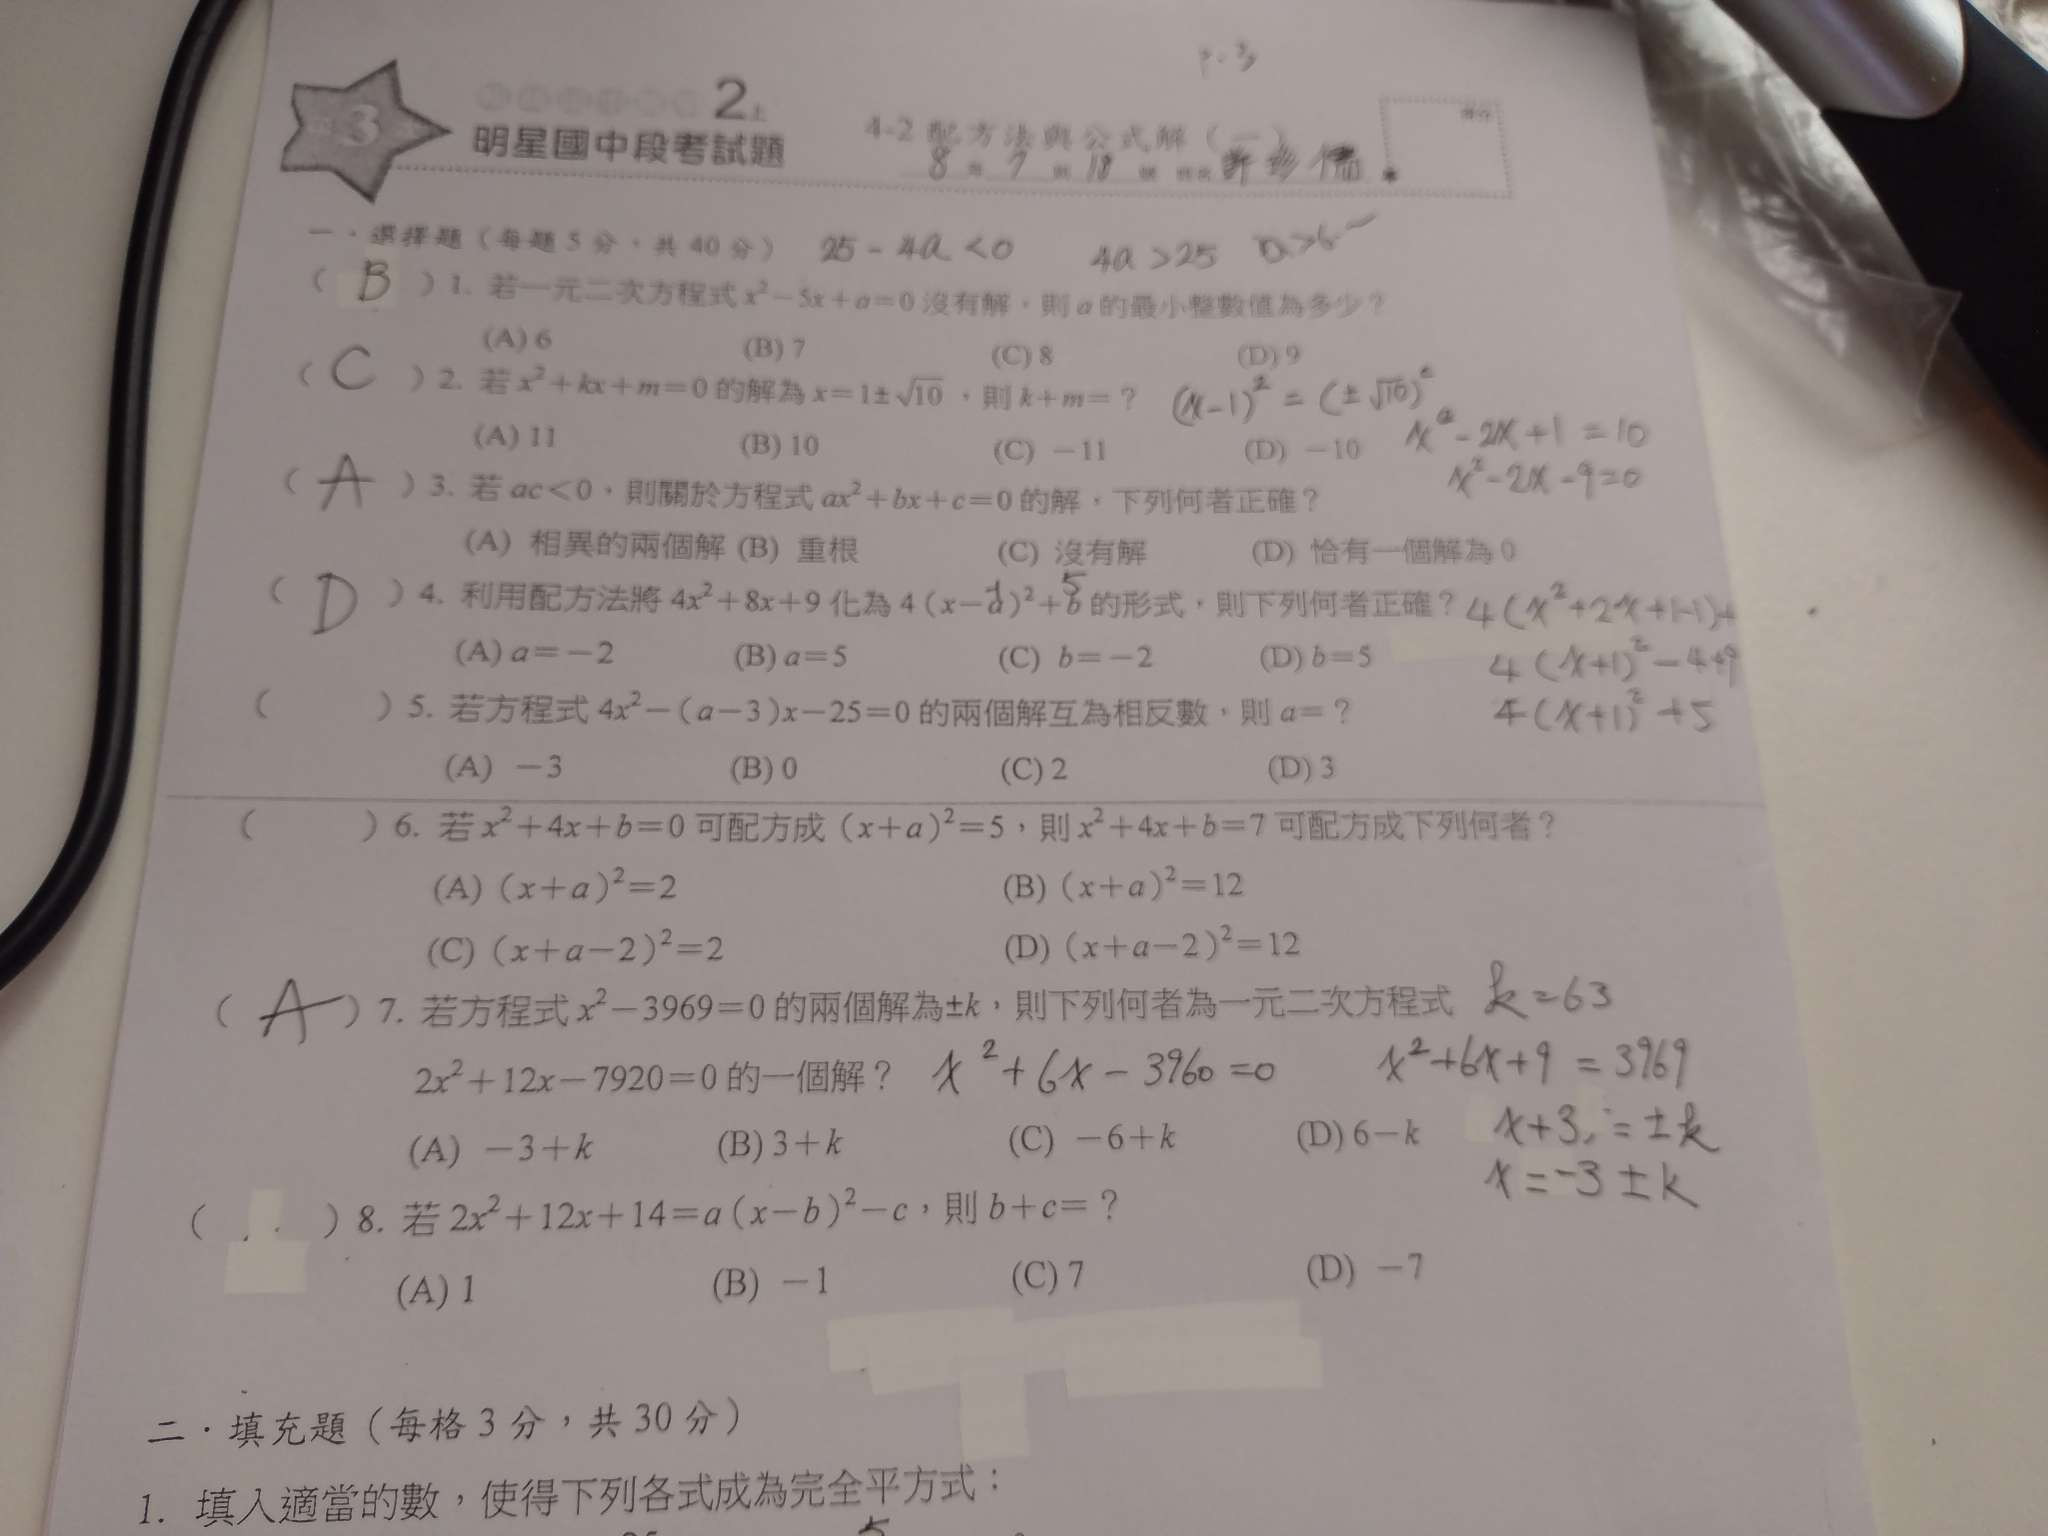 3
2上
明星國中段考試題
4-2 配方法與公式解（一）
8 年 7 班 18 號
一．選擇題（每題 5 分，共 40 分） 25-4a<0 4a>25
（ B ）1. 若一元二次方程式 x²－5x＋a＝0 沒有解，則 a 的最小整數值為多少？
(A) 6 (B) 7 (C) 8 (D) 9
（ C ）2. 若 x²＋kx＋m＝0 的解為 x＝1±√10，則 k＋m＝？ (x-1)²=(±√10)²
(A) 11 (B) 10 (C) －11 (D) －10 x²-2x+1=10
x²-2x-9=0
（ A ）3. 若 ac＜0，則關於方程式 ax²＋bx＋c＝0 的解，下列何者正確？
(A) 相異的兩個解 (B) 重根 (C) 沒有解 (D) 恰有一個解為 0
（ D ）4. 利用配方法將 4x²＋8x＋9 化為 4（x－a）²＋b 的形式，則下列何者正確？ 4(x²+2x+1-1)+
5
(A) a＝－2 (B) a＝5 (C) b＝－2 (D) b＝5 4(x+1)²-4+9
（ ）5. 若方程式 4x²－（a－3）x－25＝0 的兩個解互為相反數，則 a＝？ 4(x+1)²+5
(A) －3 (B) 0 (C) 2 (D) 3
（ ）6. 若 x²＋4x＋b＝0 可配方成（x＋a）²＝5，則 x²＋4x＋b＝7 可配方成下列何者？
(A)（x＋a）²＝2 (B)（x＋a）²＝12
(C)（x＋a－2）²＝2 (D)（x＋a－2）²＝12
（ A ）7. 若方程式 x²－3969＝0 的兩個解為±k，則下列何者為一元二次方程式 k=63
2x²＋12x－7920＝0 的一個解？ x²+6x-3960=0 x²+6x+9=3969
(A) －3＋k (B) 3＋k (C) －6＋k (D) 6－k x+3=±k
x=-3±k
（ ）8. 若 2x²＋12x＋14＝a（x－b）²－c，則 b＋c＝？
(A) 1 (B) －1 (C) 7 (D) －7
二．填充題（每格 3 分，共 30 分）
1. 填入適當的數，使得下列各式成為完全平方式：